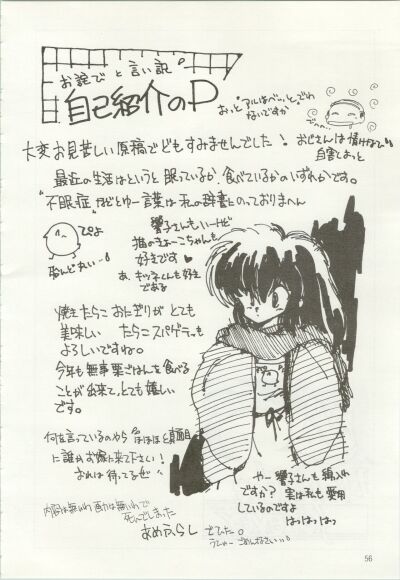 お詫びと言い訳
自己紹介のP
おっと"アルはベッとでわ
ないですか
大変お見苦しい原稿でどもすみませんでした!
おじさんは情けなくて
自害しよっと
最近の生活はというと眠っているか、食べているかのいずれかです。
"不眠症"などとゆー言葉は私の辞書にのっておりまへん
ぴよ
響子さんもいーけど
猫のきょーこちゃんも
好きです
あ、キツネくんも好き
である
焼きたらこおにぎりがとても
美味しい たらこスパゲティも
よろしいですね。
今年も無事栗ごはんを食べる
ことが出来て、とても嬉しい
です。
何を言っているのやら
に誰かお嫁に来て下さい!
おれは待ってるぜ
やー響子さんも綿入れ
ですか? 実は私も愛用
しているのですよ
はっはっはっ
内容は無いわ画力は無いわで
死んでしまった
あめふらし でした。
56